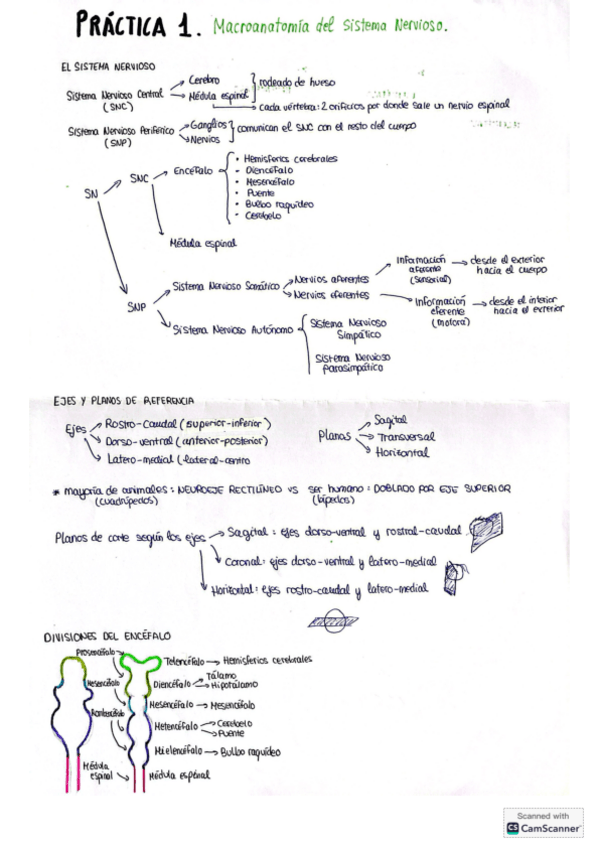 PRÁCTICA 1. Macroanatomía del Sistema Nervioso.
EL SISTEMA NERVIOSO
Sistema Nervioso Central (SNC) → Cerebro
→ Médula espinal
rodeado de hueso
→ cada vértebra: 2 orificios por donde sale un nervio espinal
Sistema Nervioso Periférico (SNP) → Ganglios
→ Nervios
comunican el SNC con el resto del cuerpo
SN → SNC → Encéfalo
• Hemisferios cerebrales
• Diencéfalo
• Mesencéfalo
• Puente
• Bulbo raquídeo
• Cerebelo
Médula espinal
SNP → Sistema Nervioso Somático → Nervios aferentes → Información aferente (sensorial) → desde el exterior hacia el cuerpo
→ Nervios eferentes → Información eferente (motora) → desde el interior hacia el exterior
→ Sistema Nervioso Autónomo
Sistema Nervioso Simpático
Sistema Nervioso Parasimpático
EJES Y PLANOS DE REFERENCIA
Ejes → Rostro-Caudal (superior-inferior)
→ Dorso-ventral (anterior-posterior)
→ Latero-medial (lateral-centro
Planos → Sagital
→ Transversal
→ Horizontal
* mayoría de animales: NEUROEJE RECTILÍNEO VS ser humano: DOBLADO POR EJE SUPERIOR
(cuadrúpedos) (bípedos)
Planos de corte según los ejes → Sagital: ejes dorso-ventral y rostral-caudal
→ Coronal: ejes dorso-ventral y latero-medial
→ Horizontal: ejes rostro-caudal y latero-medial
DIVISIONES DEL ENCÉFALO
Prosencéfalo
Telencéfalo → Hemisferios cerebrales
Diencéfalo → Tálamo
→ Hipotálamo
Mesencéfalo
Mesencéfalo → Mesencéfalo
Metencéfalo → Cerebelo
→ Puente
Mielencéfalo → Bulbo raquídeo
Médula espinal → Médula espinal
Scanned with
CS CamScanner